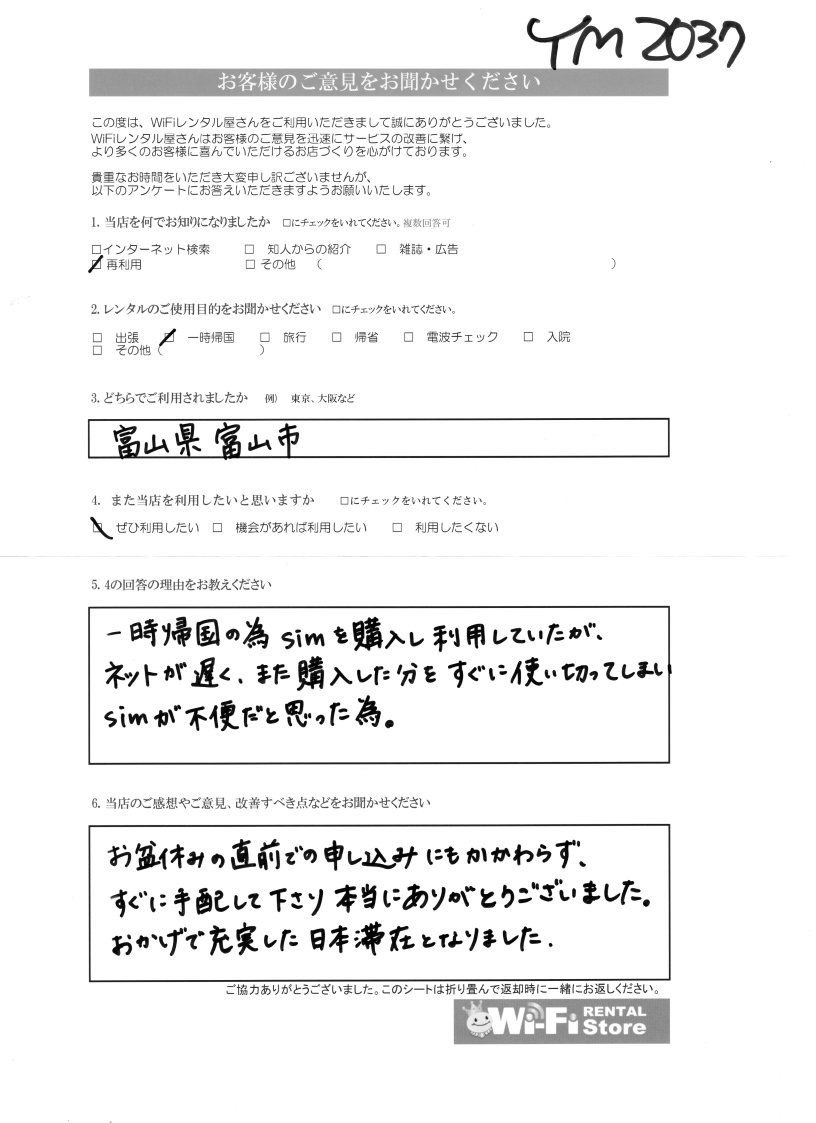 YM2037
お客様のご意見をお聞かせください
この度は、WiFiレンタル屋さんをご利用いただきまして誠にありがとうございました。
WiFiレンタル屋さんはお客様のご意見を迅速にサービスの改善に繋げ、
より多くのお客様に喜んでいただけるお店づくりを心がけております。
貴重なお時間をいただき大変申し訳ございませんが、
以下のアンケートにお答えいただきますようお願いいたします。
1. 当店を何でお知りになりましたか □にチェックをいれてください。複数回答可
□インターネット検索 □ 知人からの紹介 □ 雑誌・広告
□ 再利用 □ その他 ( )
2. レンタルのご使用目的をお聞かせください □にチェックをいれてください。
□ 出張 □ 一時帰国 □ 旅行 □ 帰省 □ 電波チェック □ 入院
□ その他 ( )
3. どちらでご利用されましたか 例） 東京、大阪など
富山県 富山市
4. また当店を利用したいと思いますか □にチェックをいれてください。
□ ぜひ利用したい □ 機会があれば利用したい □ 利用したくない
5. 4の回答の理由をお教えください
一時帰国の為 simを購入し利用していたが、
ネットが遅く、また購入した分をすぐに使い切ってしまい
simが不便だと思った為。
6. 当店のご感想やご意見、改善すべき点などをお聞かせください
お盆休みの直前での申し込みにもかかわらず、
すぐに手配して下さり本当にありがとうございました。
おかげで充実した日本滞在となりました.
ご協力ありがとうございました。このシートは折り畳んで返却時に一緒にお返しください。
Wi-Fi RENTAL Store